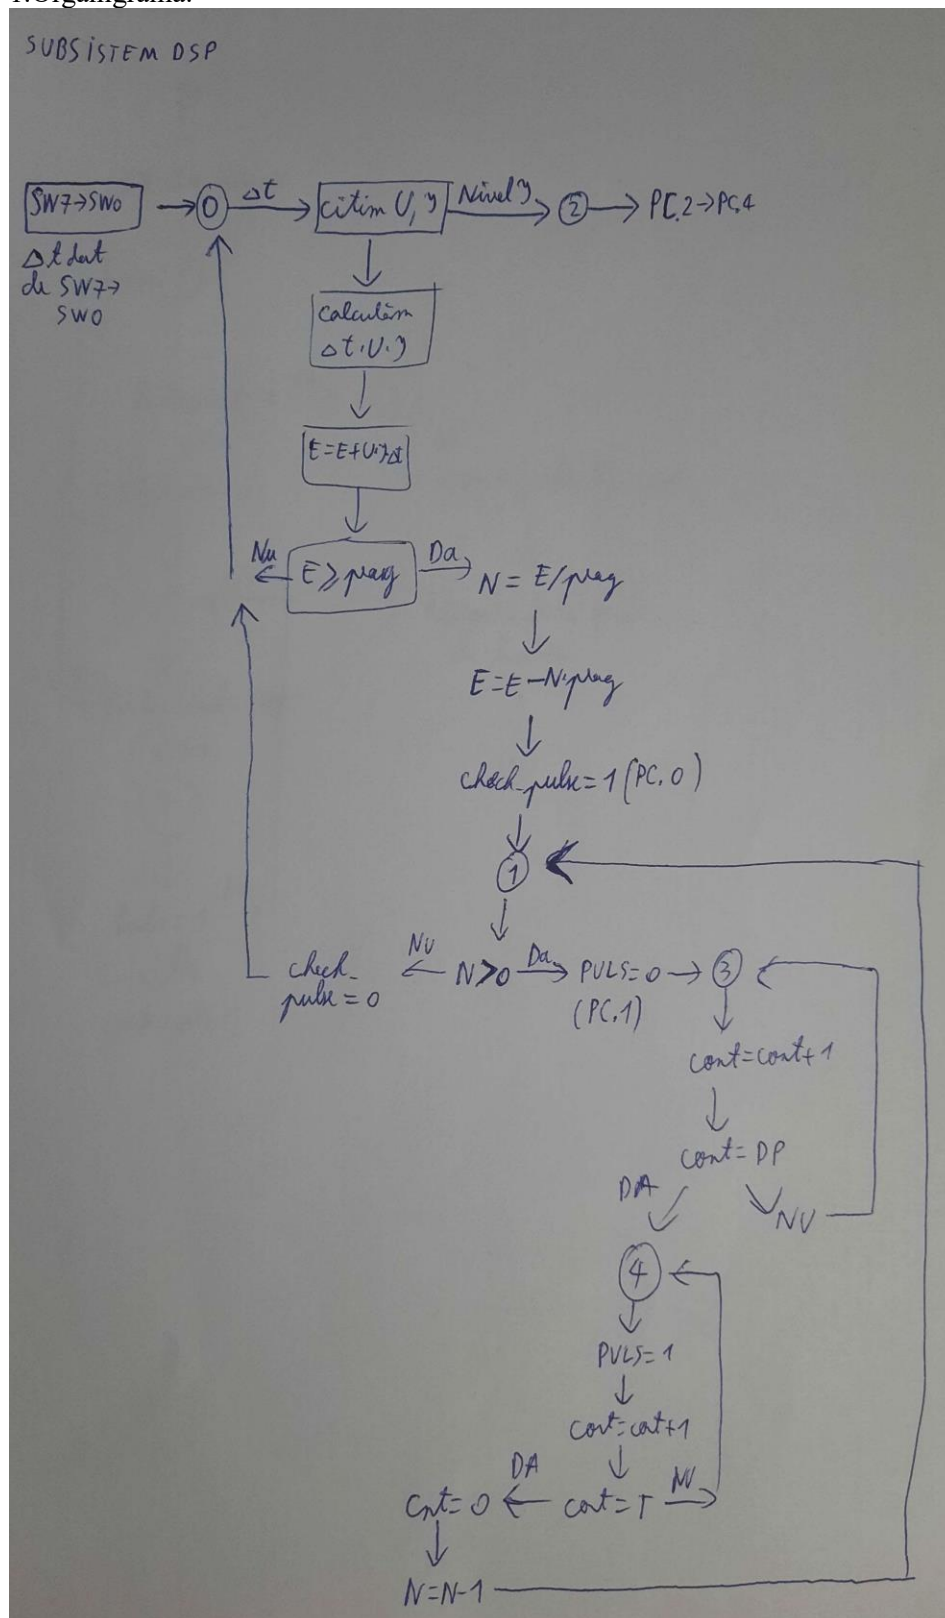 1.Organigrama:
SUBSISTEM DSP
SW7→SW0
Δt dat
de SW7→
SW0
0
Δt
citim U, I
Nivel I
2
PC.2→PC.4
calculăm
Δt.U.I
E=E+U.I.Δt
Nu
E≥prag
Da
N = E/prag
E=E-N.prag
check_pulse=1 (PC.0)
1
check_
pulse=0
NU
N>0
Da
PULS=0
(PC.1)
3
cont=cont+1
cont=DP
DA
NU
4
PULS=1
cont=cont+1
DA
cont=T
NU
cnt=0
N=N-1